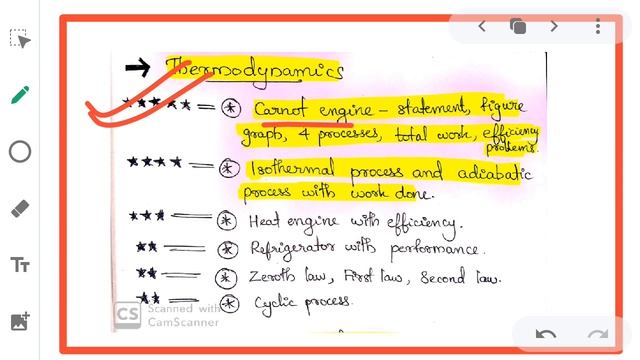 → Thermodynamics
★★★★★ = ⊛ Carnot engine - statement, figure
graph, 4 processes, total work, efficiency
problems.
★★★★ = ⊛ Isothermal process and adiabatic
process with work done.
★★★ = ⊛ Heat engine with efficiency.
★★ = ⊛ Refrigerator with performance.
★★ = ⊛ Zeroth law, First law, Second law.
★★ = ⊛ Cyclic process.
CS Scanned with
CamScanner
TT